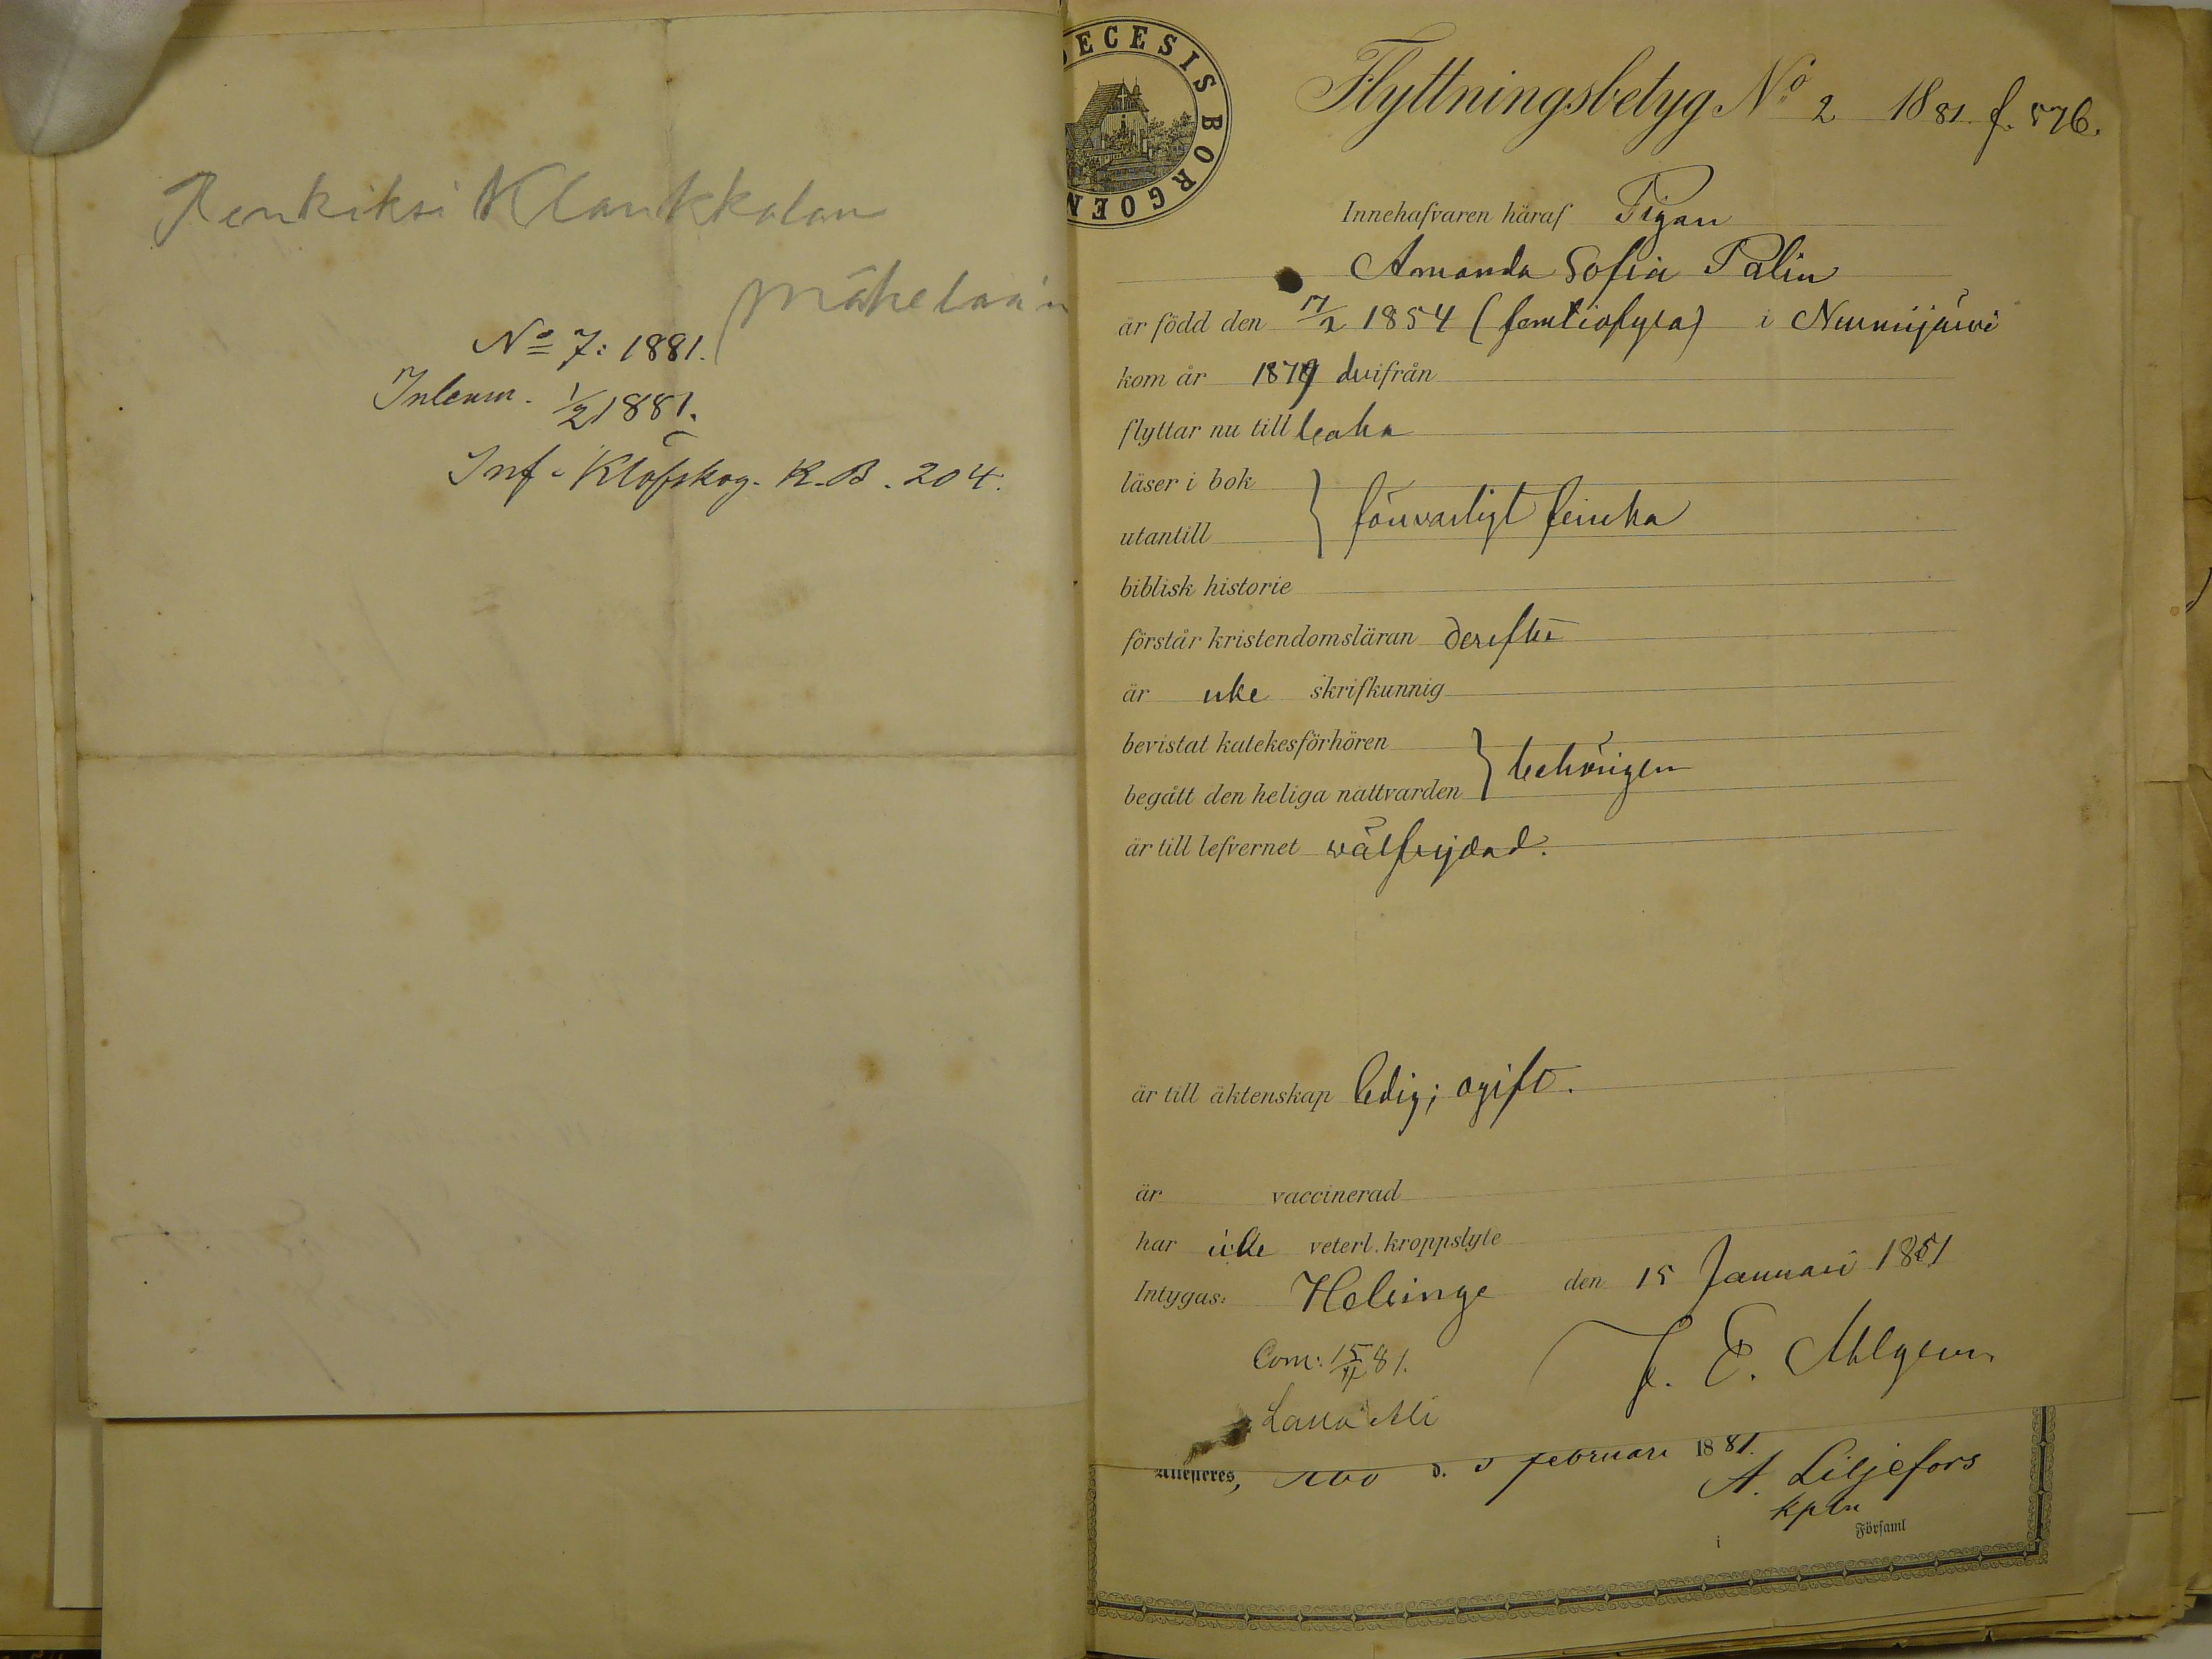 Renkiksi Klaukkalan
Mäkelään
No 7: 1881.
Inlemn. 1/2 1881.
Inf. i Klöfskog. K.B. 204.
DIECESIS BORGOEN
Flyttningsbetyg No 2 1881. f. 576.
Innehafvaren häraf Pigan
Amanda Sofia Palin
är född den 17/2 1854 (femtiofyra) i Nurmijärvi
kom år 1879 derifrån
flyttar nu till
läser i bok
försvarligt finska
utantill
biblisk historie
förstår kristendomsläran derefter
är icke skrifkunnig
bevistat katekesförhören
behörigen
begått den heliga nattvarden
är till lefvernet välfrejdad.
är till äktenskap ledig; ogift.
är vaccinerad
har icke veterl. kroppslyte
Intygas: Helsinge den 15 Januari 1881
Com: 81.
J. E. Ahlgren
Attesteres, Åbo d. 5 februari 1881.
A. Liljefors
kpln
i Församl